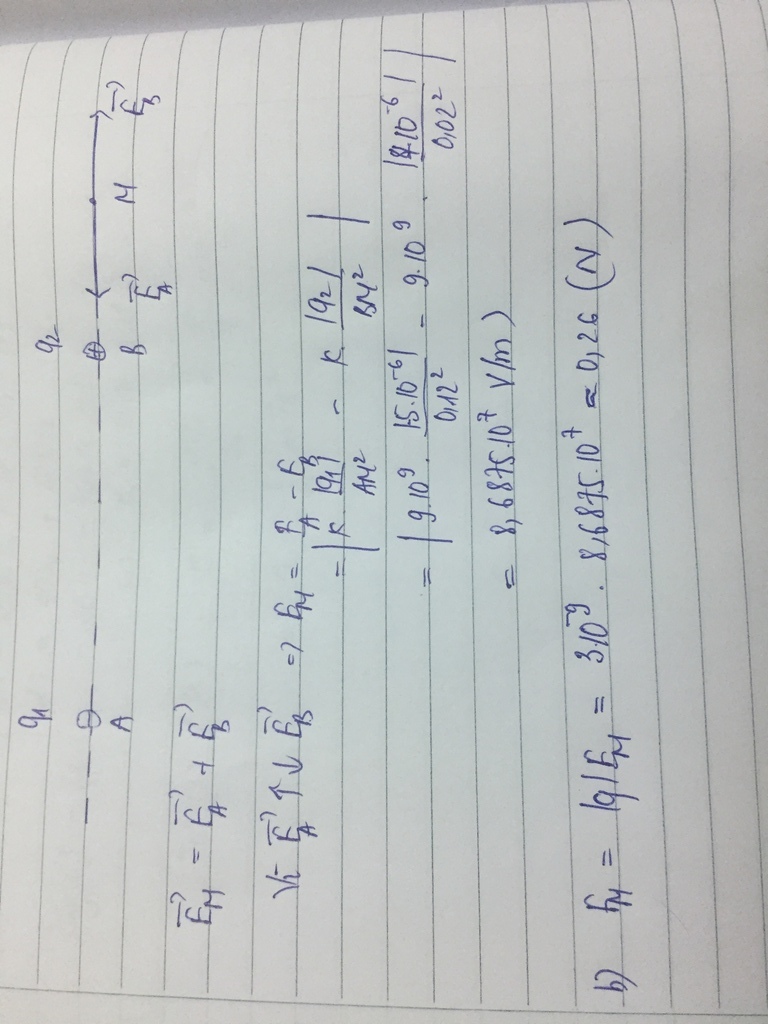 q1 q2
A B E⃗A M E⃗B
E⃗M = E⃗A + E⃗B
Vì E⃗A ↑↓ E⃗B => EM = EA - EB
= |K |q1|/AM² - K |q2|/BM²|
= |9.10⁹ . |5.10⁻⁶|/0,12² - 9.10⁹ . |4.10⁻⁶|/0,02²|
= 8,6875.10⁷ V/m)
b) FM = |q|EM = 3.10⁻⁹ . 8,6875.10⁷ ≈ 0,26 (N)